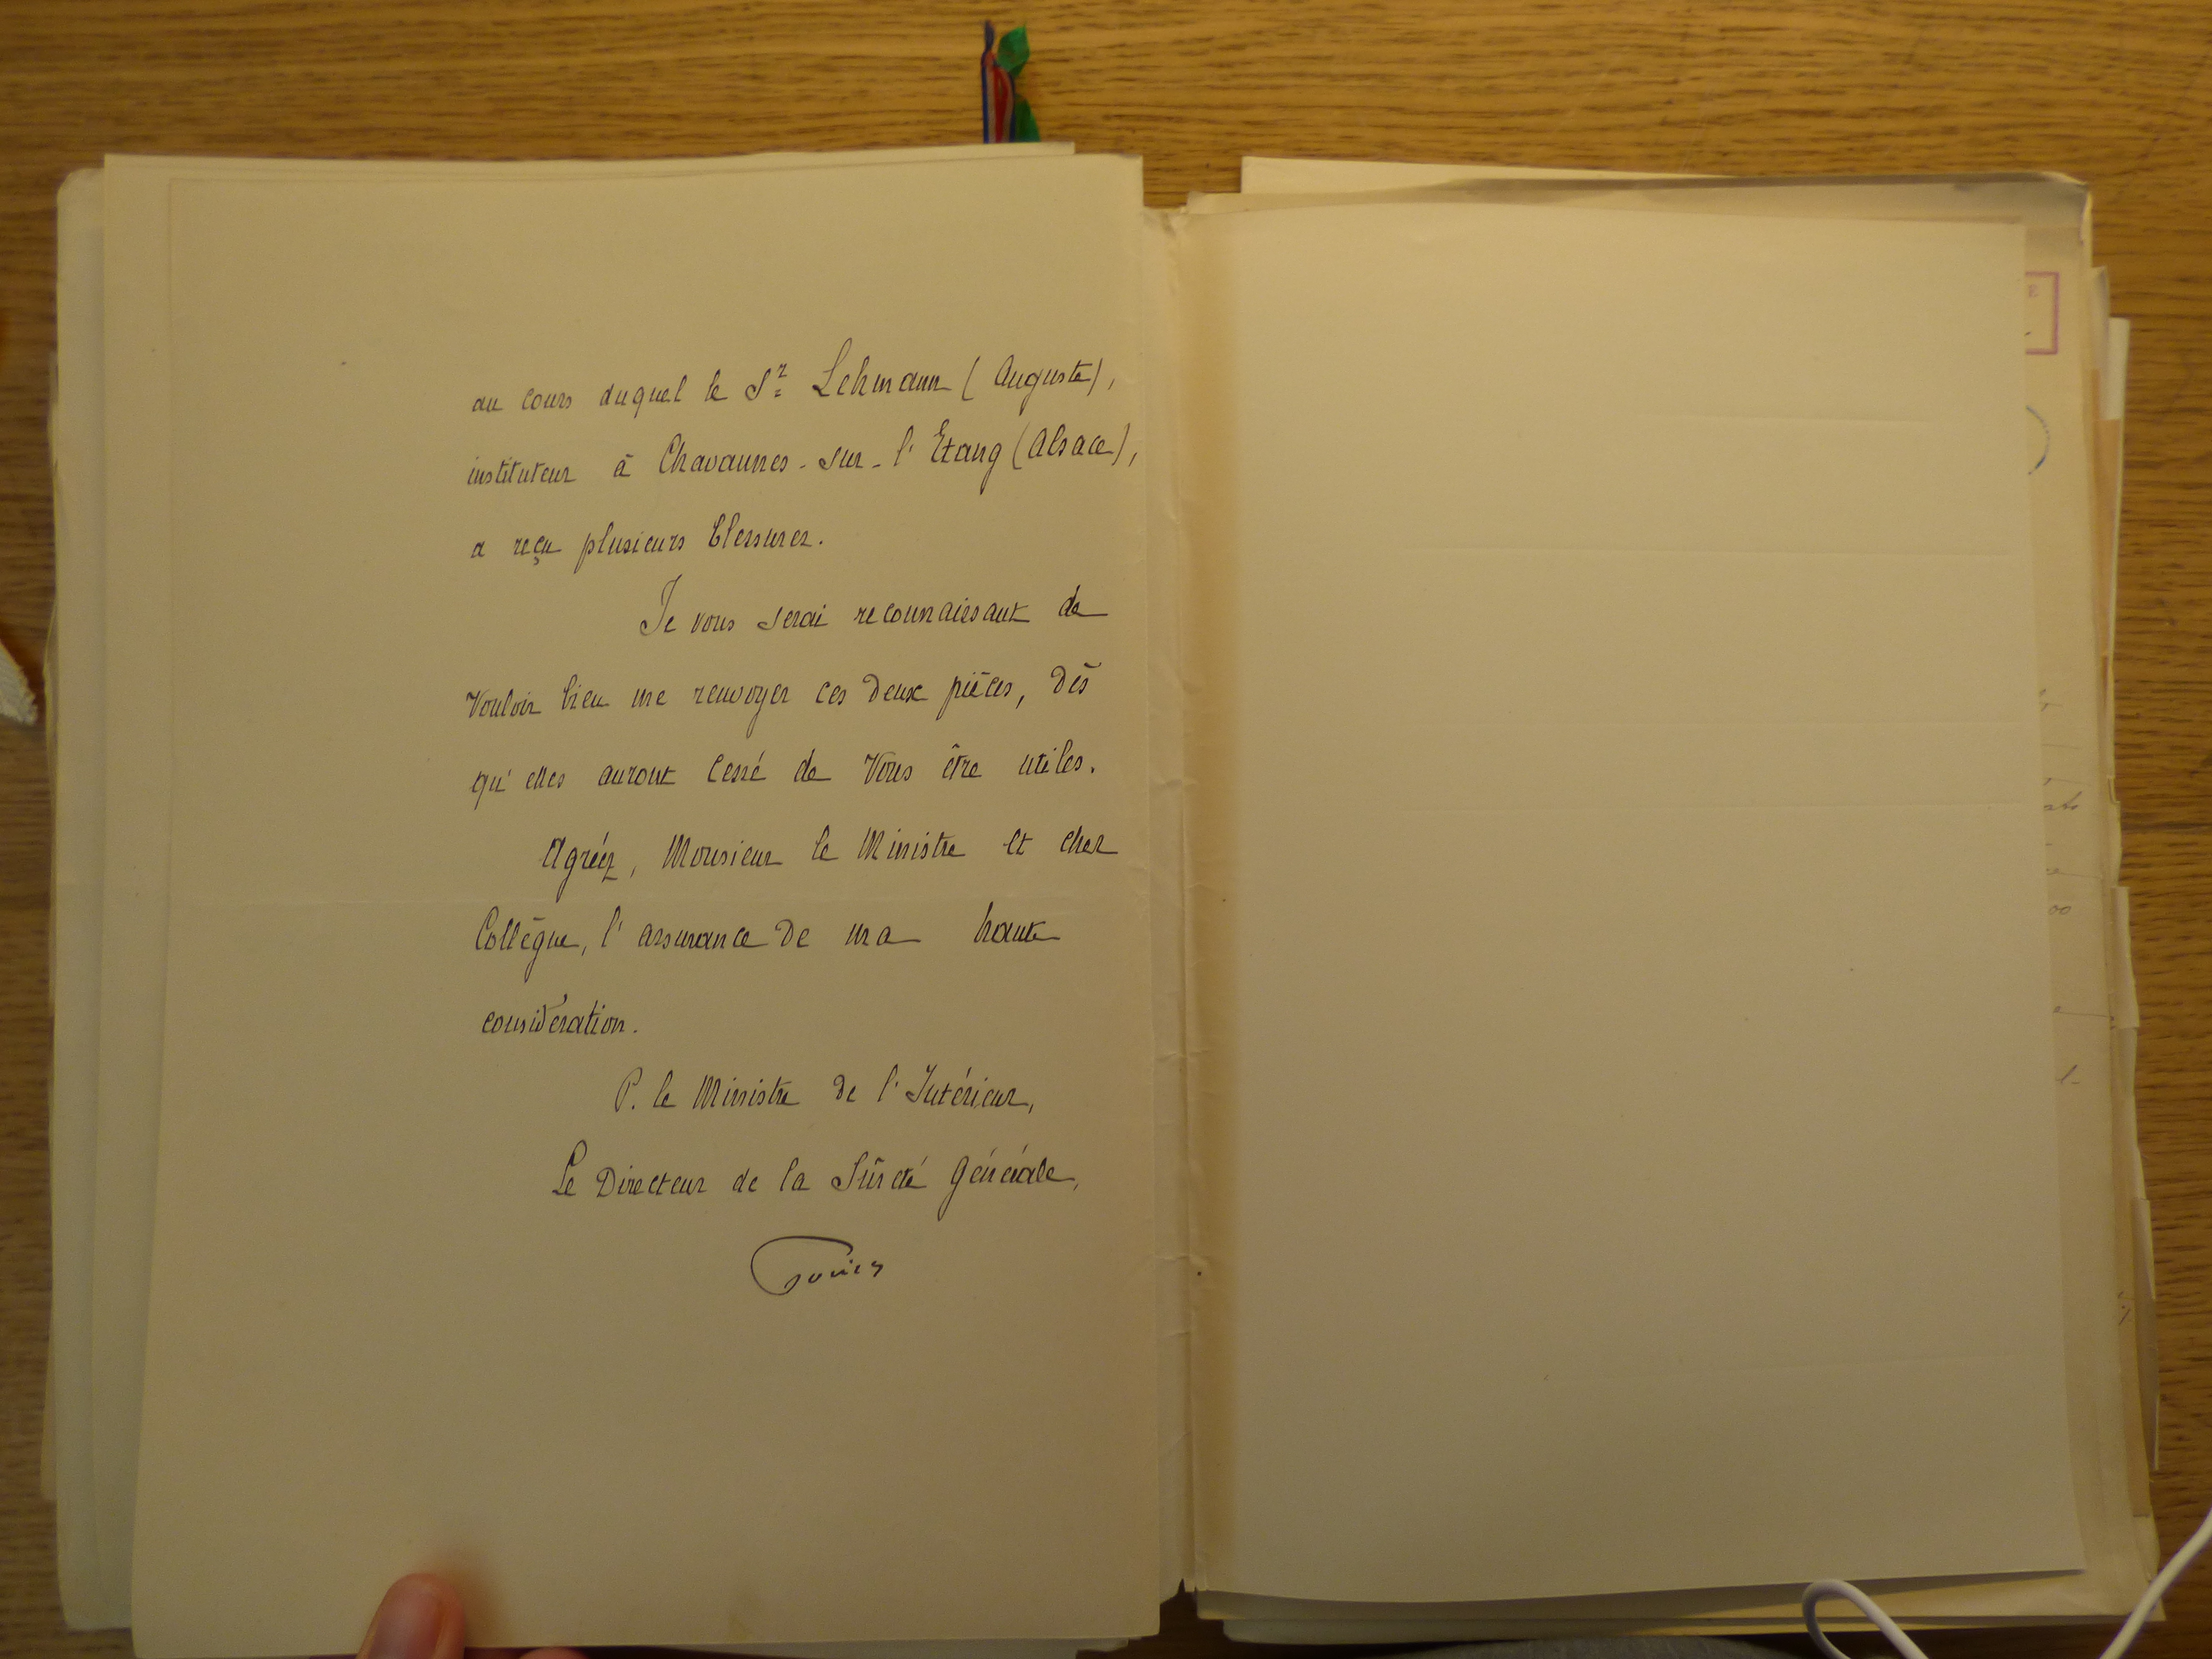 au cours duquel le Sr Lehmann (Auguste),
instituteur à Chavannes-sur-l'Etang (Alsace),
a reçu plusieurs blessures.
Je vous serai reconnaissant de
vouloir bien me renvoyer ces deux pièces, dès
qu'elles auront cessé de vous être utiles.
Agréez, Monsieur le Ministre et cher
Collègue, l'assurance de ma haute
considération.
P. le Ministre de l'Intérieur,
Le Directeur de la Sûreté Générale,